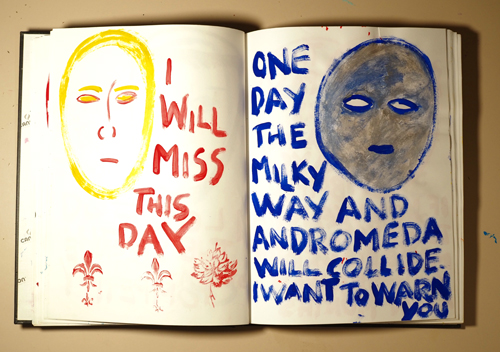 I
WILL
MISS
THIS
DAY
ONE
DAY
THE
MILKY
WAY AND
ANDROMEDA
WILL COLLIDE.
I WANT TO WARN
YOU